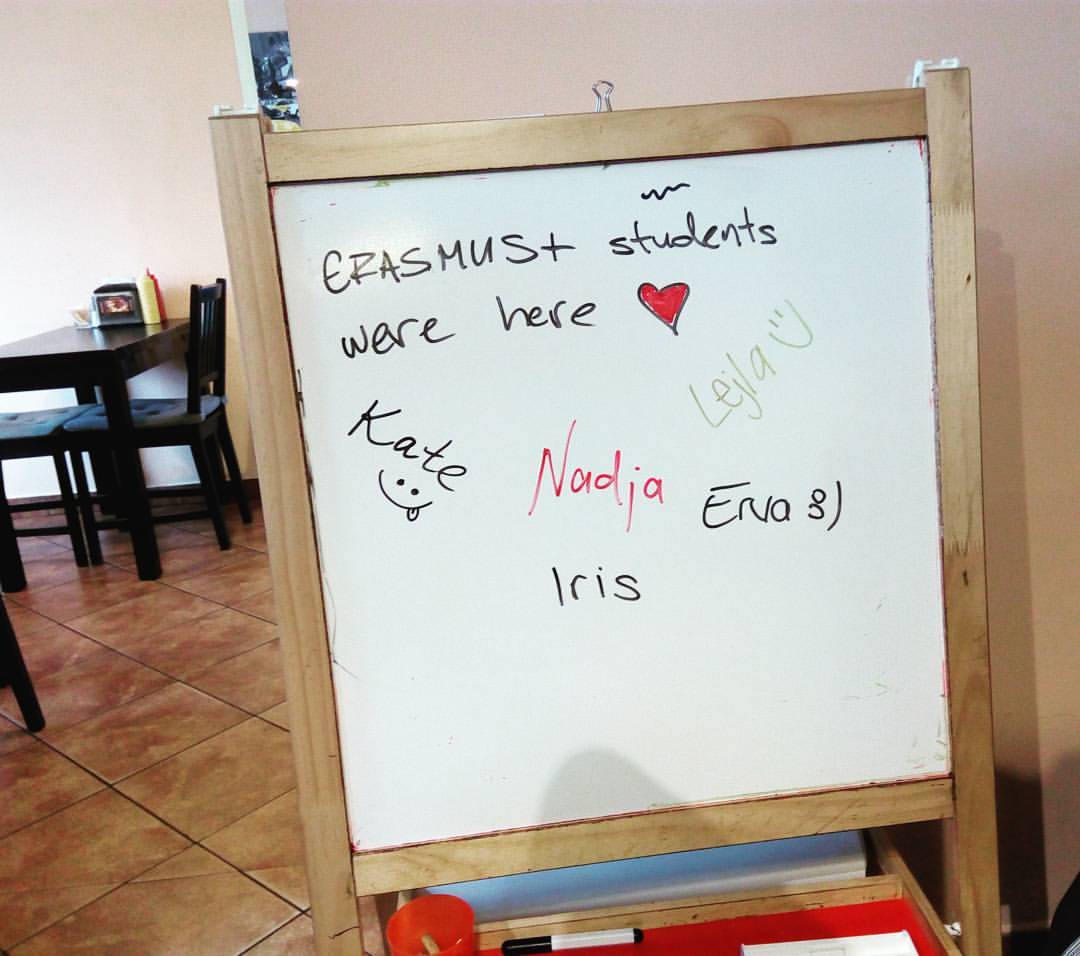 ERASMUS+ students
were here
Lejla
Kate
Nadja
Erva 8)
Iris